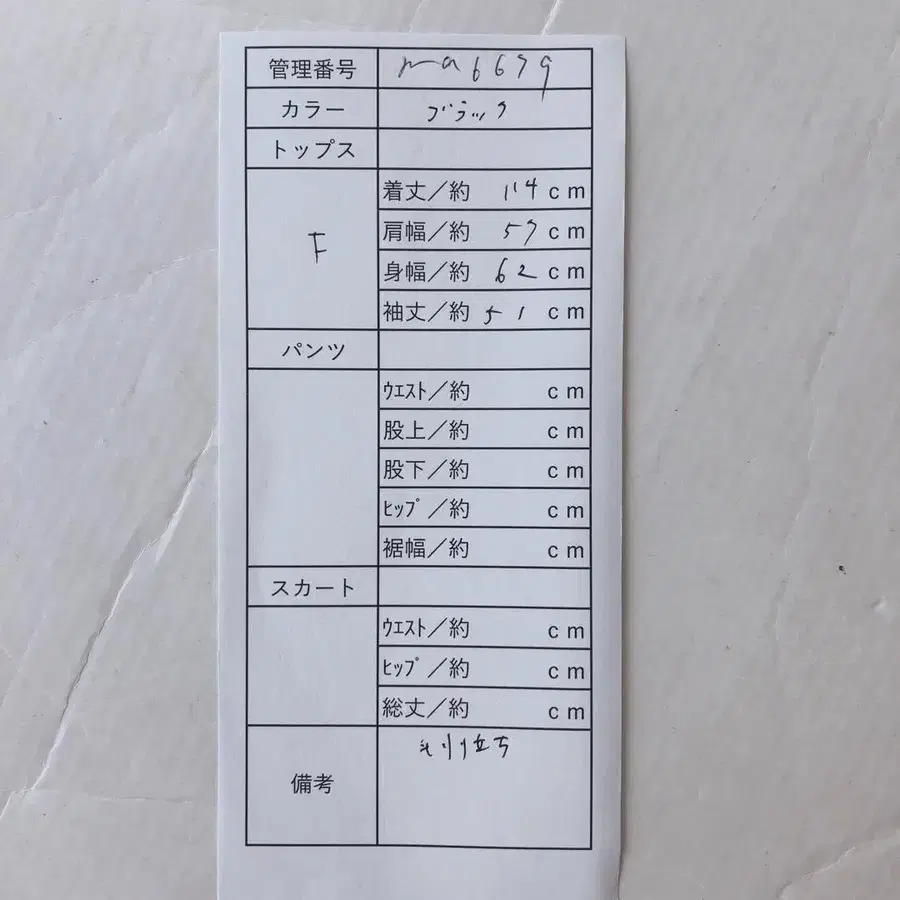 管理番号 ma6679
カラー ブラック
トップス
F
着丈／約 114 cm
肩幅／約 57 cm
身幅／約 62 cm
袖丈／約 51 cm
パンツ
ｳｴｽﾄ／約 cm
股上／約 cm
股下／約 cm
ﾋｯﾌﾟ／約 cm
裾幅／約 cm
スカート
ｳｴｽﾄ／約 cm
ﾋｯﾌﾟ／約 cm
総丈／約 cm
備考 毛羽立ち